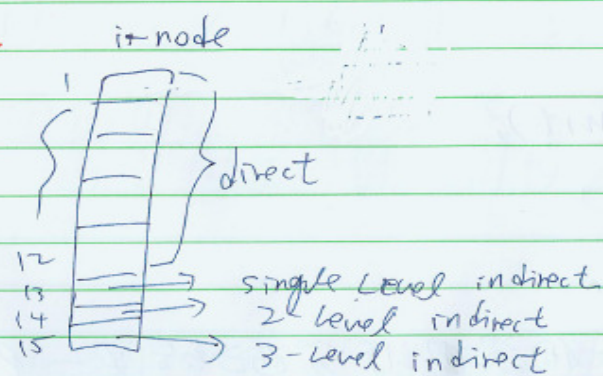 i-node
1
direct
12
13 single Level indirect
14 2-level indirect
15 3-Level indirect